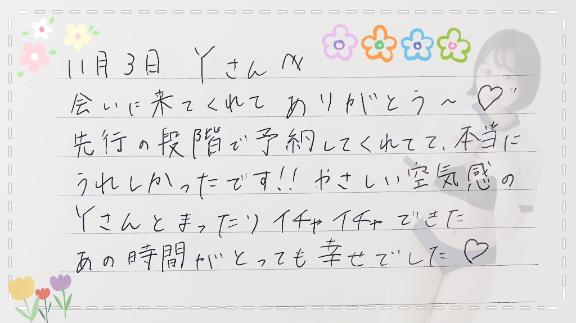 11月3日 Yさんへ
会いに来てくれて ありがとう〜♡
先行の段階で予約してくれてて、本当に
うれしかったです!! やさしい空気感の
Yさんとまったりイチャイチャできた
あの時間がとっても幸せでした♡